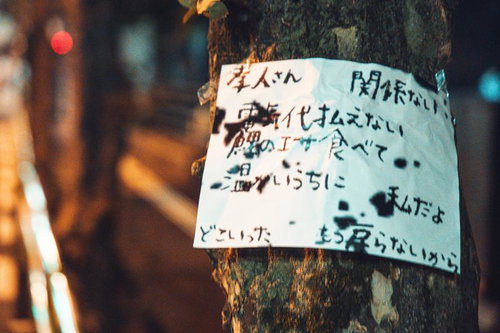 孝人さん 関係ない
電気代払えない
鯉のエサ食べて
温かいうちに
私だよ
どこいった もう戻らないから